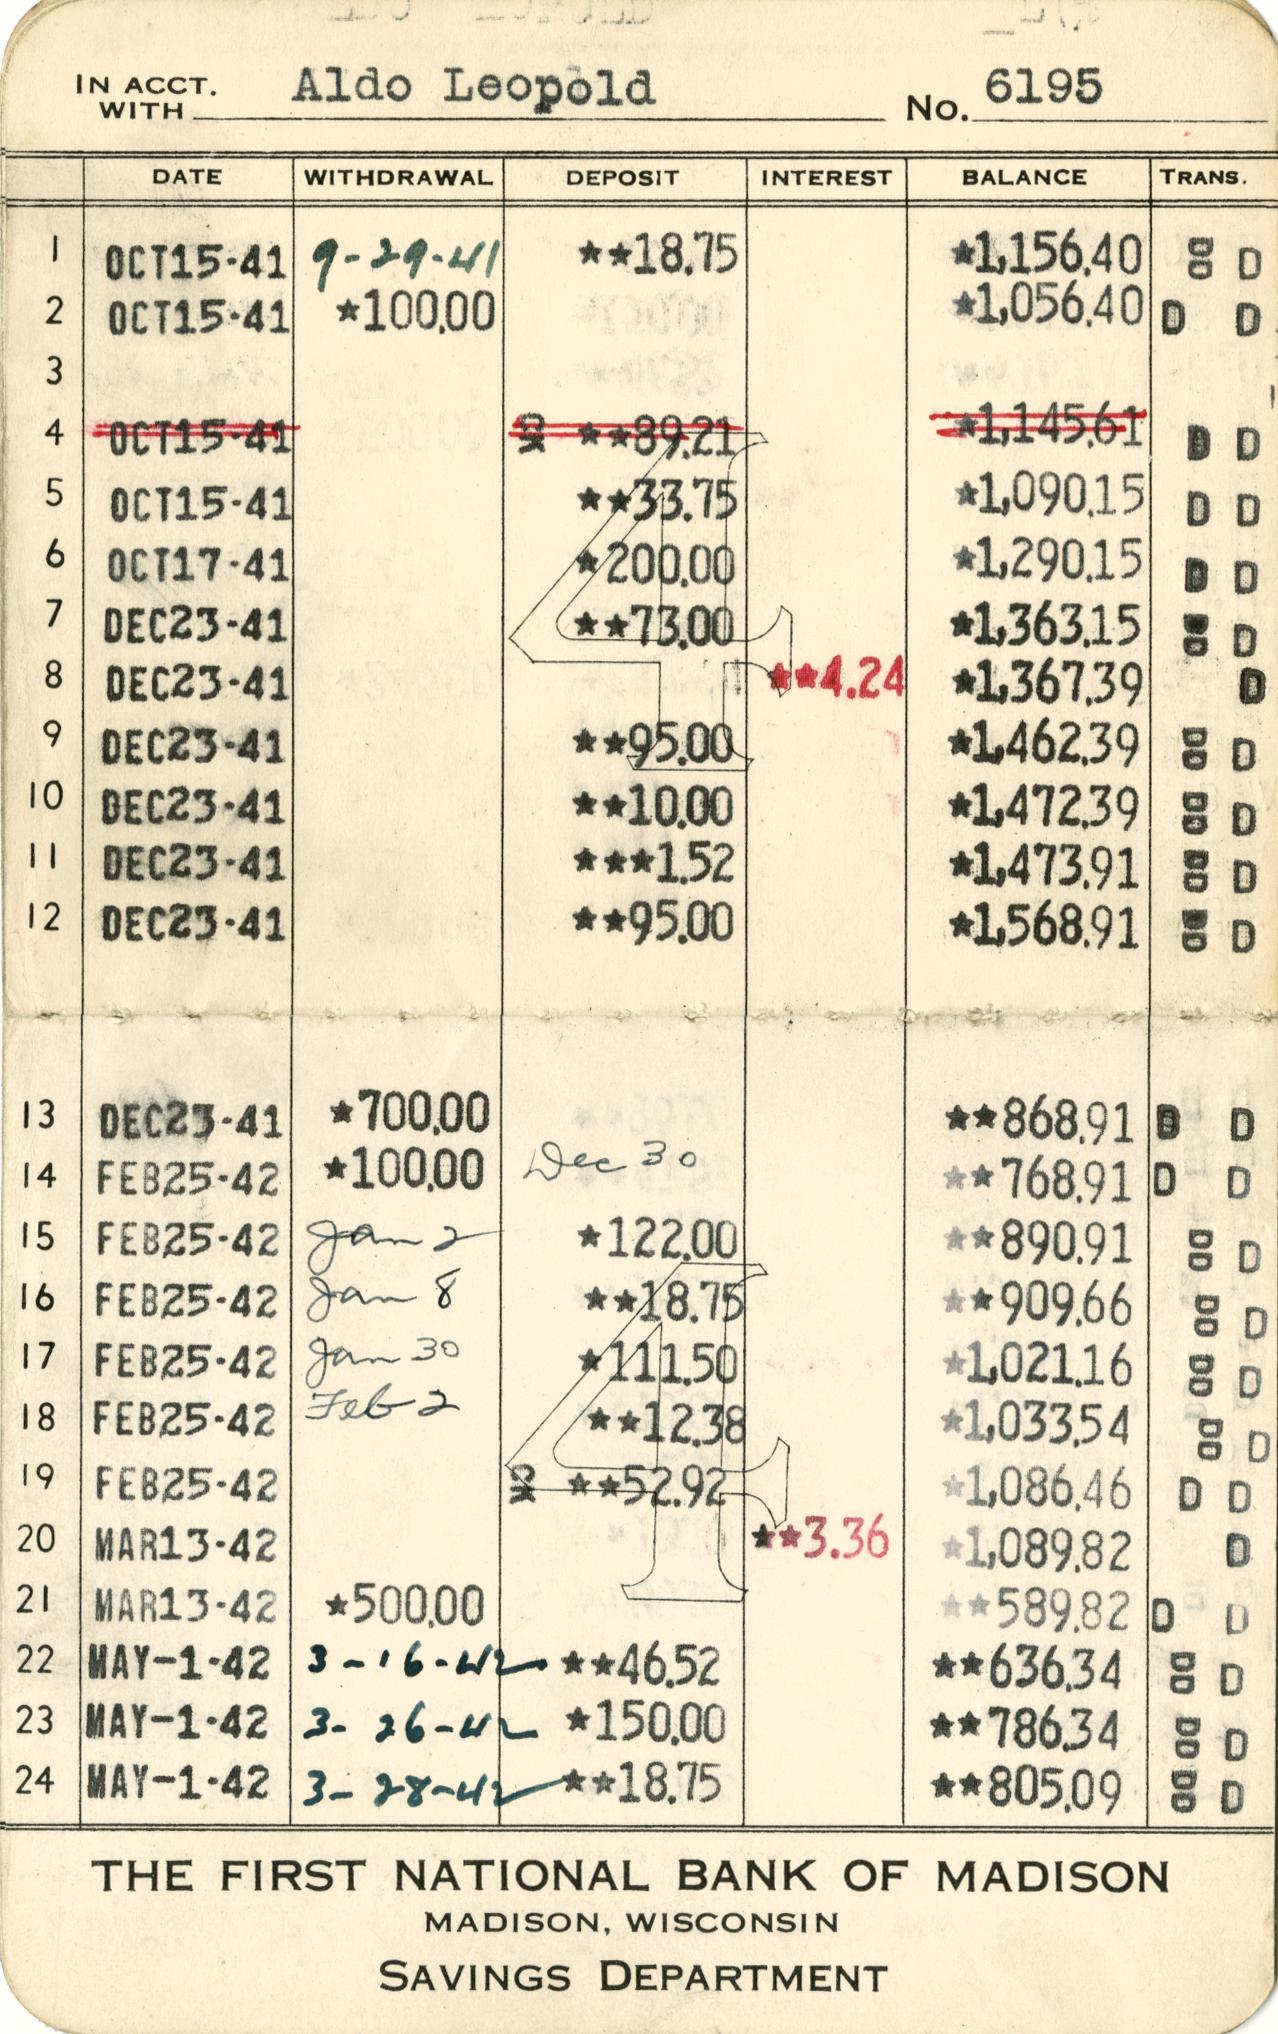 IN ACCT. WITH Aldo Leopold No. 6195
DATE WITHDRAWAL DEPOSIT INTEREST BALANCE TRANS.
1 OCT15-41 9-29-41 ★★18.75 ★1,156.40 D D
2 OCT15-41 ★100.00 ★1,056.40 D D
3
4 OCT15-41 ★★89.21 ★1,145.61 D D
5 OCT15-41 ★★33.75 ★1,090.15 D D
6 OCT17-41 ★200.00 ★1,290.15 D D
7 DEC23-41 ★★73.00 ★1,363.15 D
8 DEC23-41 ★★4.24 ★1,367.39 D
9 DEC23-41 ★★95.00 ★1,462.39 D
10 DEC23-41 ★★10.00 ★1,472.39 D
11 DEC23-41 ★★★1.52 ★1,473.91 D
12 DEC23-41 ★★95.00 ★1,568.91 D
13 DEC23-41 ★700.00 ★★868.91 D D
14 FEB25-42 ★100.00 Dec 30 ★★768.91 D D
15 FEB25-42 Jan 2 ★122.00 ★★890.91 D
16 FEB25-42 Jan 8 ★★18.75 ★★909.66 D
17 FEB25-42 Jan 30 ★111.50 ★1,021.16 D
18 FEB25-42 Feb 2 ★★12.38 ★1,033.54 D
19 FEB25-42 ★★52.92 ★1,086.46 D D
20 MAR13-42 ★★3.36 ★1,089.82 D
21 MAR13-42 ★500.00 ★★589.82 D D
22 MAY-1-42 3-16-42 ★★46.52 ★★636.34 D
23 MAY-1-42 3-26-42 ★150.00 ★★786.34 D
24 MAY-1-42 3-28-42 ★★18.75 ★★805.09 D
4
4
THE FIRST NATIONAL BANK OF MADISON
MADISON, WISCONSIN
SAVINGS DEPARTMENT